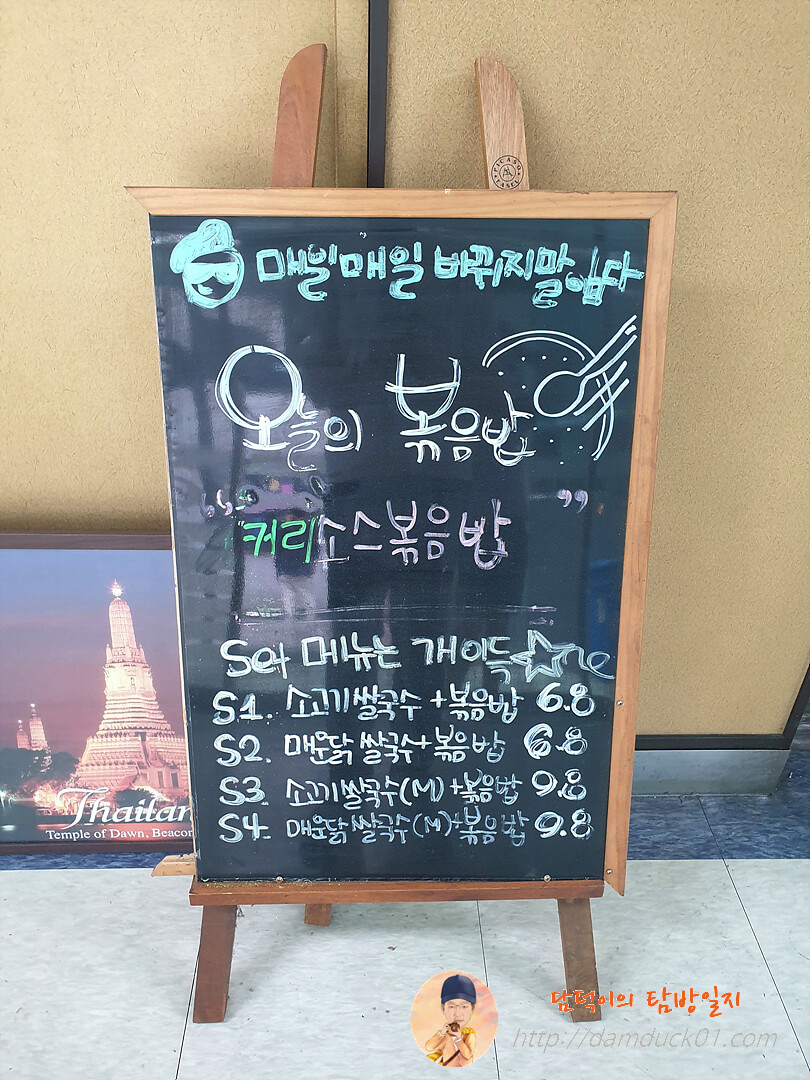 PICASO EASEL
매일매일 바뀌지말임다
오늘의 볶음밥
"커리소스볶음밥"
Set 메뉴는 개이득
S1. 소고기쌀국수+볶음밥 6.8
S2. 매운닭쌀국수+볶음밥 6.8
S3. 소고기쌀국수(M)+볶음밥 9.8
S4. 매운닭쌀국수(M)+볶음밥 9.8
Thailan
Temple of Dawn, Beacon
담덕이의 탐방일지
http://damduck01.com